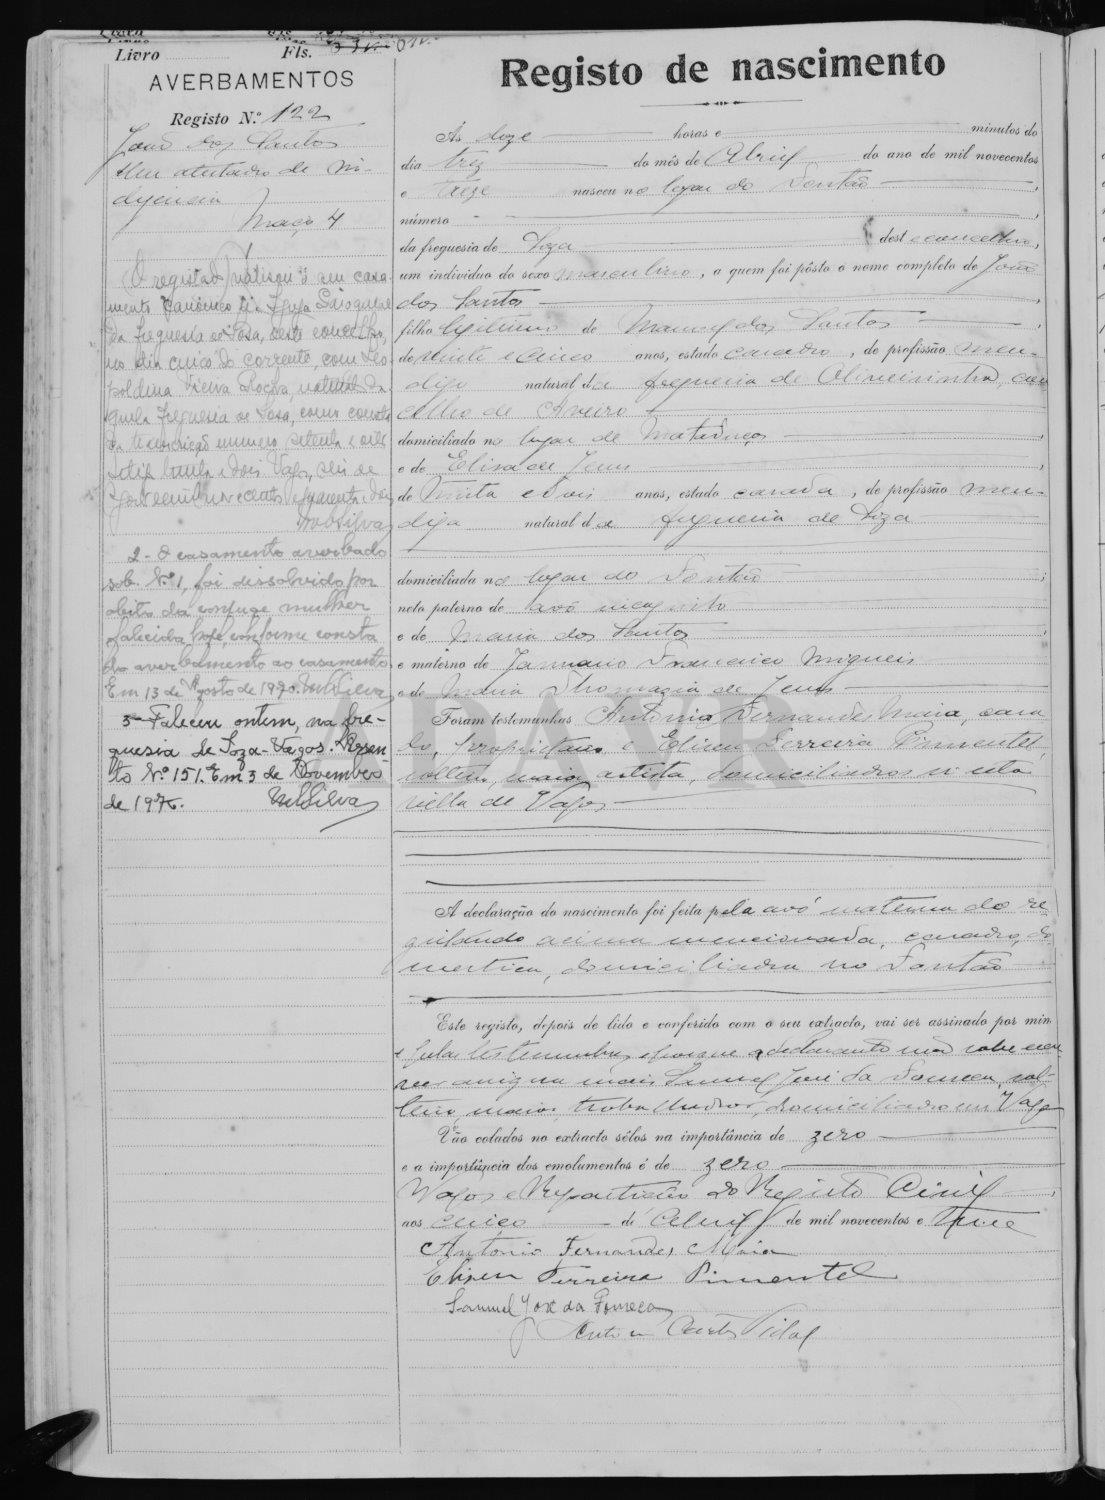 Livro Fls.
AVERBAMENTOS
Registo N.º 122
João dos Santos
Tem atestado de in-
digencia
Maço 4
O registado
mento canónico na Igreja Paroquial
da freguesia de Sosa, deste concelho,
no dia cinco do corrente, com Leo
poldina Vieira Rocha, natural da
quela freguesia de Sosa, como consta
da transcrição número setenta e oito
Vagos, seis de
mil novecentos e quarenta e dois
MSilva
2 - O casamento averbado
sob N.º 1, foi dissolvido por
obito da conjuge mulher
falecida hoje, conforme consta
do averbamento ao casamento.
Em 13 de Agosto de 1970. MSilva
3 - Faleceu ontem, na fre-
guesia de Soza - Vagos. Assen
to N.º 151. Em 3 de Novembro
de 1976. MSilva
Registo de nascimento
Ás doze horas e minutos do
dia trez do mês de Abril do ano de mil novecentos
e treze nasceu no logar do Fontão,
número
da freguesia de Soza deste concelho,
um individuo do sexo masculino, a quem foi pôsto o nome completo de João
dos Santos
filho legitimo de Manuel dos Santos
de vinte e cinco anos, estado casado, de profissão men-
digo natural da freguesia de Oliveirinha, con
celho de Aveiro
domiciliado no logar de Mataduços
e de Elisa de Jesus
de trinta e dois anos, estado casada, de profissão men-
diga natural da freguesia de Soza
domiciliada no logar do Fontão
neto paterno de avô incognito
e de Maria dos Santos
e materno de Januario Francisco Migueis
e de Maria Thomazia de Jesus
Foram testemunhas Antonio Fernandes Maia, casa
do, proprietario e Eliseu Ferreira Pimentel,
solteiro, maior, artista, domiciliados n'esta
villa de Vagos
A declaração do nascimento foi feita pela avó materna do re
gistando acima mencionada, casada, do
mestica, domiciliada no Fontão
Este registo, depois de lido e conferido com o seu extracto, vai ser assinado por mim
e pelas testemunhas e porque a declarante não sabe escre
ver assigna mais Samuel José da Fonseca, sol-
teiro, maior, trabalhador, domiciliado em Vagos
Vão colados no extracto sêlos na importância de zero
e a importância dos emolumentos é de zero
Vagos e Repartição do Registo Civil
aos cinco de Abril de mil novecentos e treze
Antonio Fernandes Maia
Eliseu Ferreira Pimentel
Samuel José da Fonseca
ADAVR